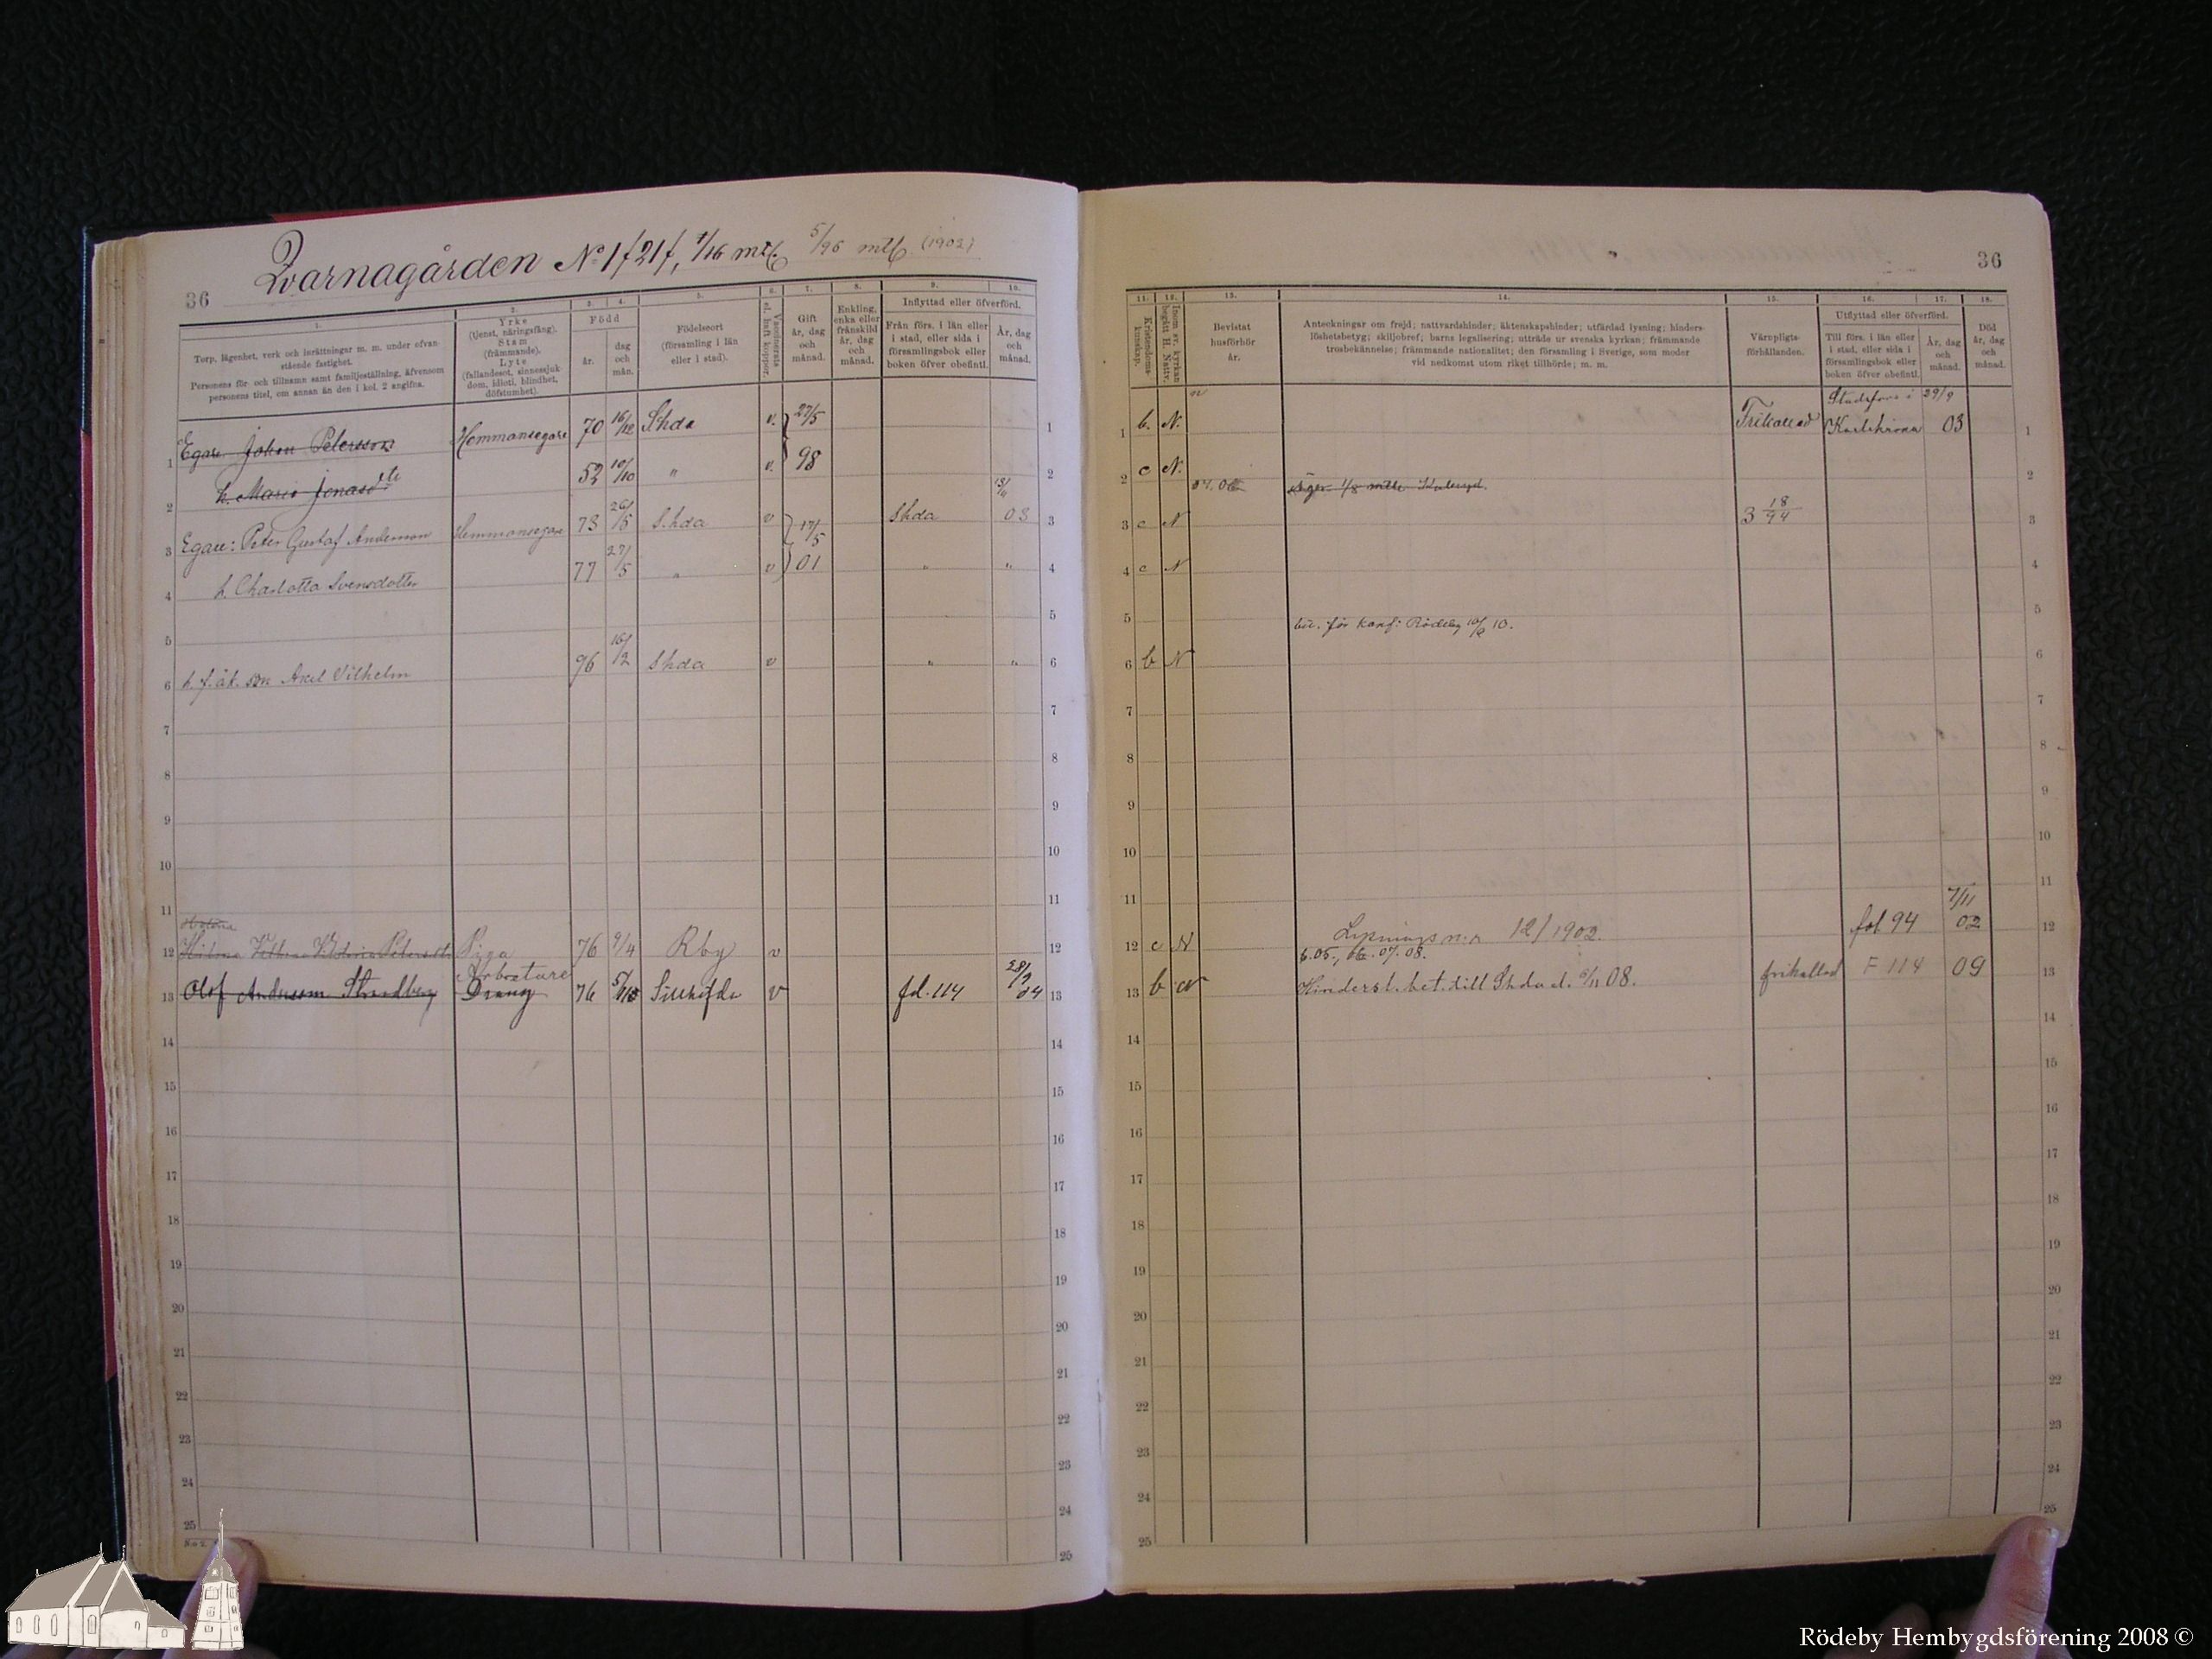 36
Qvarnagården № 1 f 21 f, 1/16 mtl. 5/96 mtl (1902)
1.
Torp, lägenhet, verk och inrättningar m. m. under ofvan-
stående fastighet.
Personens för- och tillnamn samt familjeställning, äfvensom
personens titel, om annan än den i kol. 2 angifna.
2.
Yrke
(tjenst, näringsfång).
Stam
(främmande).
Lyte
(fallandesot, sinnessjuk-
dom, idioti, blindhet,
döfstumhet).
3.
4.
Född
år.
dag
och
mån.
5.
Födelseort
(församling i län
eller i stad).
6.
Vaccinerats
el. haft koppor.
7.
Gift
år, dag
och
månad.
8.
Enkling,
enka eller
frånskild
år, dag
och
månad.
9.
10.
Inflyttad eller öfverförd.
Från förs. i län eller
i stad, eller sida i
församlingsbok eller
boken öfver obefintl.
År, dag
och
månad.
1 Egare Johan Petersson Hemmansegare 70 16/12 Shda v. 27/5 1
2 h. Maria Jonasdtr 52 10/10 " v. 98 2
3 Egare: Peter Gustaf Andersson Hemmansegare 73 26/5 Shda v 17/5 Shda 03 3
4 h. Charlotta Svensdotter 77 27/5 " v 01 " " 4
5 5
6 h. f. äk. son Axel Vilhelm 96 16/2 Shda v " " 6
7 7
8 8
9 9
10 10
11 11
12 Piga 76 9/4 Rby v 12
Arbetare
13 Olof Andersson Strandberg Dräng 76 5/10 Sillhöfda v fd. 114 28/9 04 13
14 14
15 15
16 16
17 17
18 18
19 19
20 20
21 21
22 22
23 23
24 24
25 25
N:o 2.
36
11.
Kristendoms-
kunskap.
12.
Inom sv. kyrkan
begått H. Nattv.
13.
Bevistat
husförhör
år.
14.
Anteckningar om frejd; nattvardshinder; äktenskapshinder; utfärdad lysning; hinders-
löshetsbetyg; skiljobref; barns legalisering; utträde ur svenska kyrkan; främmande
trosbekännelse; främmande nationalitet; den församling i Sverige, som moder
vid nedkomst utom riket tillhörde; m. m.
15.
Värnpligts-
förhållanden.
16.
17.
Utflyttad eller öfverförd.
Till förs. i län eller
i stad, eller sida i
församlingsbok eller
boken öfver obefintl.
År, dag
och
månad.
18.
Död
år, dag
och
månad.
Stadsförs i 29/9
1 b. N. Frikallad Karlskrona 03 1
2 c N. 2
äger 1/8 mtl
3 c N 3 18/94 3
4 c N 4
5 5
bet. för konf. Rödeby 10/9 10.
6 b N 6
7 7
8 8
9 9
10 10
11 11
7/11
12 c N Lysnings 12/1902. fol 94 02 12
b. 05., 06. 07. 08.
13 b N Hindersl. bet. till Shda d. 5/11 08. frikallad F 114 09 13
14 14
15 15
16 16
17 17
18 18
19 19
20 20
21 21
22 22
23 23
24 24
25 25
Rödeby Hembygdsförening 2008 ©